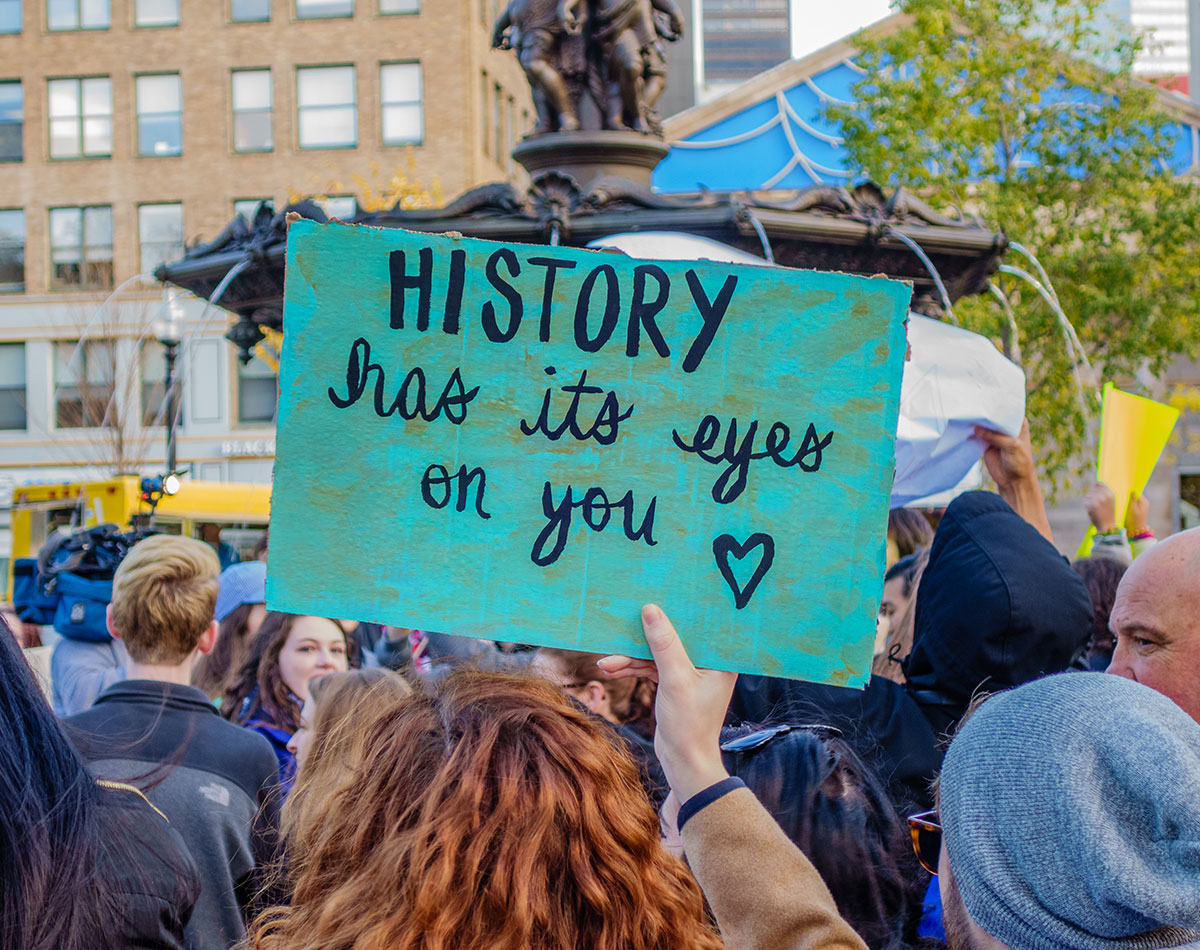 BLACK
HISTORY
has its eyes
on you